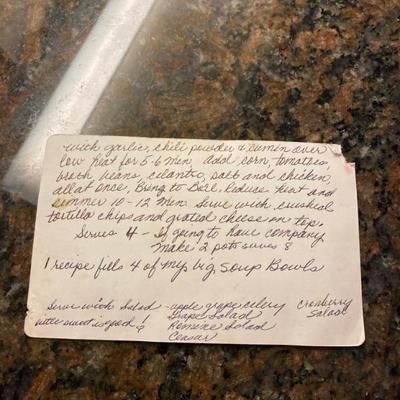 with garlic, chili powder & cumin over
low heat for 5-6 min, add corn, tomatoes,
broth, beans, cilantro, salt and chicken
all at once, Bring to Boil, Reduce heat and
simmer 10-12 min. Serve with crushed
tortilla chips and grated cheese on top.
Serves 4 - If going to have company
make 2 pots serves 8
1 recipe fills 4 of my big soup Bowls
Serve with salad - apple grape celery cranberry
little sweet is good! Grape Salad Salad
Romaine Salad
Ceasar